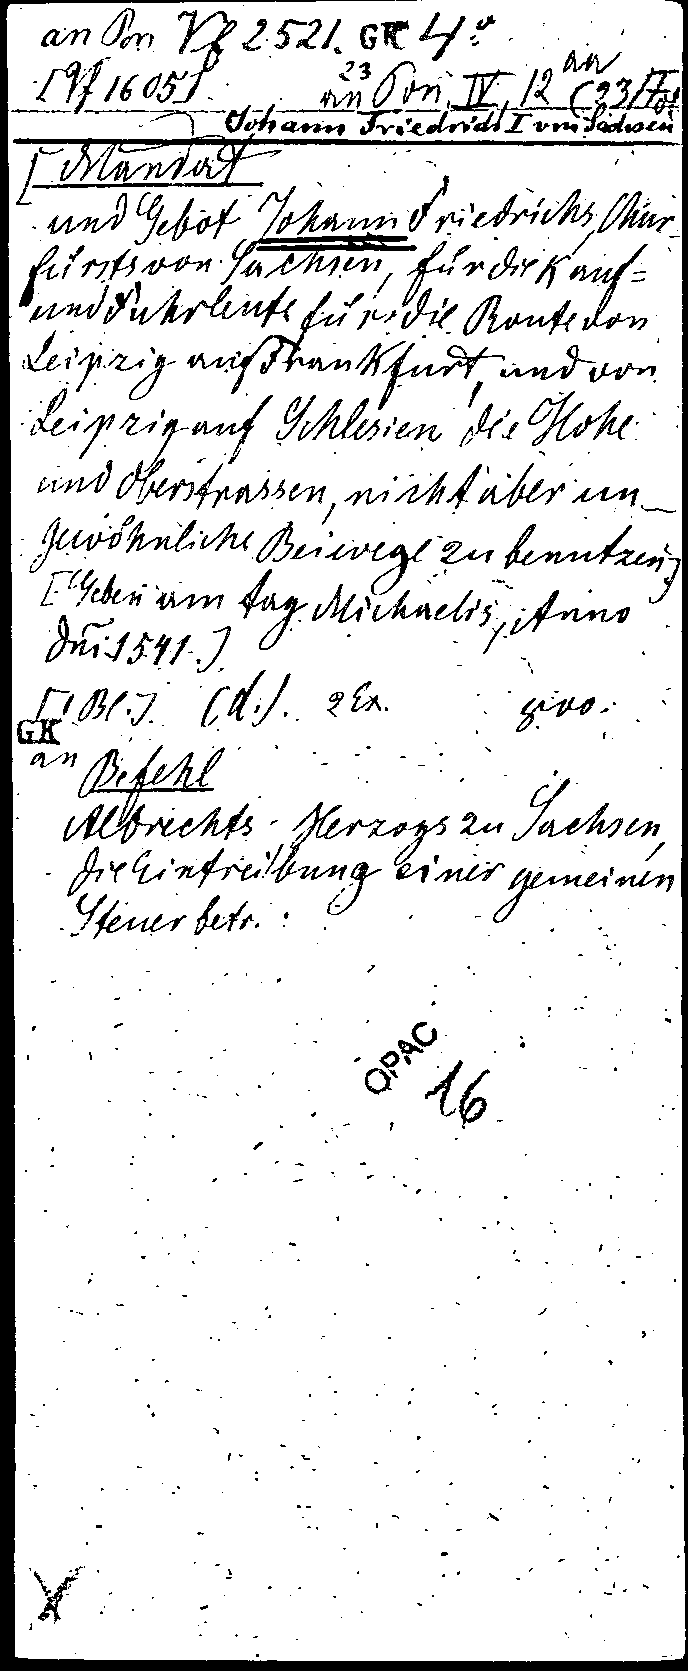 an Pon Vf 2521. GK 4°
[Vf 1605] 23 an Pon IV, 12 aa
Johann Friedrich I von Sachsen
[Mandat
und Gebot Johann Friedrichs, Chur-
fürsts von Sachsen, für die Kauf=
und Fuhrleute für die Route von
Leipzig auf Frankfurt, und von
Leipzig auf Schlesien die Hohe
und Oberstrassen, nicht aber un-
gewöhnliche Beiwege zu benutzen]
[Geben am tag Michaelis, Anno
dni 1541.]
[1 Bl.]. (d.). 2 Ex.
GK
an Befehl
Albrechts Herzogs zu Sachsen,
die Eintreibung einer gemeinen
Steuer betr.
OPAC
16